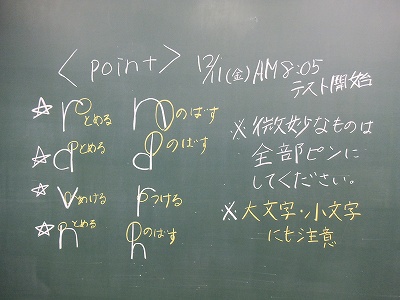 <point> 12/11(金)AM8:05
テスト開始
☆ r とめる n のばす
☆ a とめる d のばす
☆ v あける r つける
☆ n とめる h のばす
※微妙なものは
全部ピンに
してください。
※大文字・小文字
にも注意